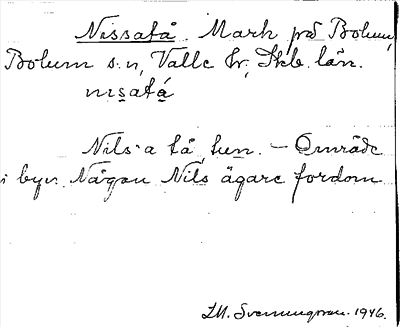 Nissatå. Mark på Bolum,
Bolum s:n, Valle hd, Skb. län.
nɩsatá
Nils:a tå, tun. – Område
i byn. Någon Nils ägare fordom
J.M. Svenungsson. 1946.